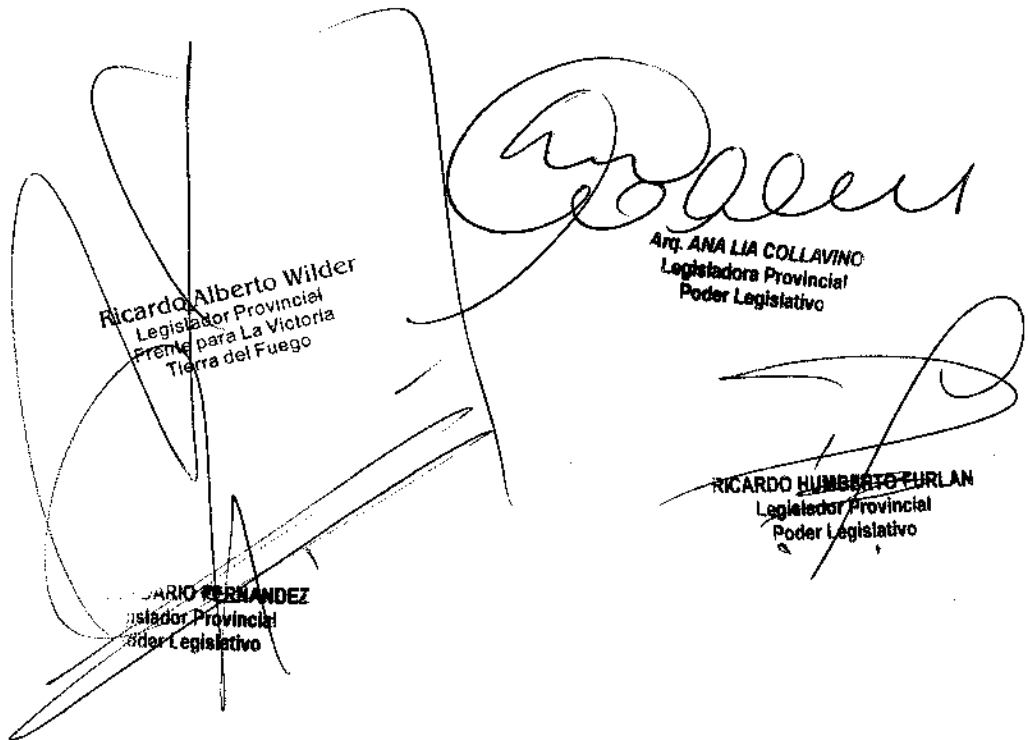 Ricardo Alberto Wilder
Legislador Provincial
Frente para La Victoria
Tierra del Fuego
Arq. ANA LIA COLLAVINO
Legisladora Provincial
Poder Legislativo
RICARDO HUMBERTO FURLAN
Legislador Provincial
Poder Legislativo
DARIO FERNANDEZ
islador Provincial
oder Legislativo